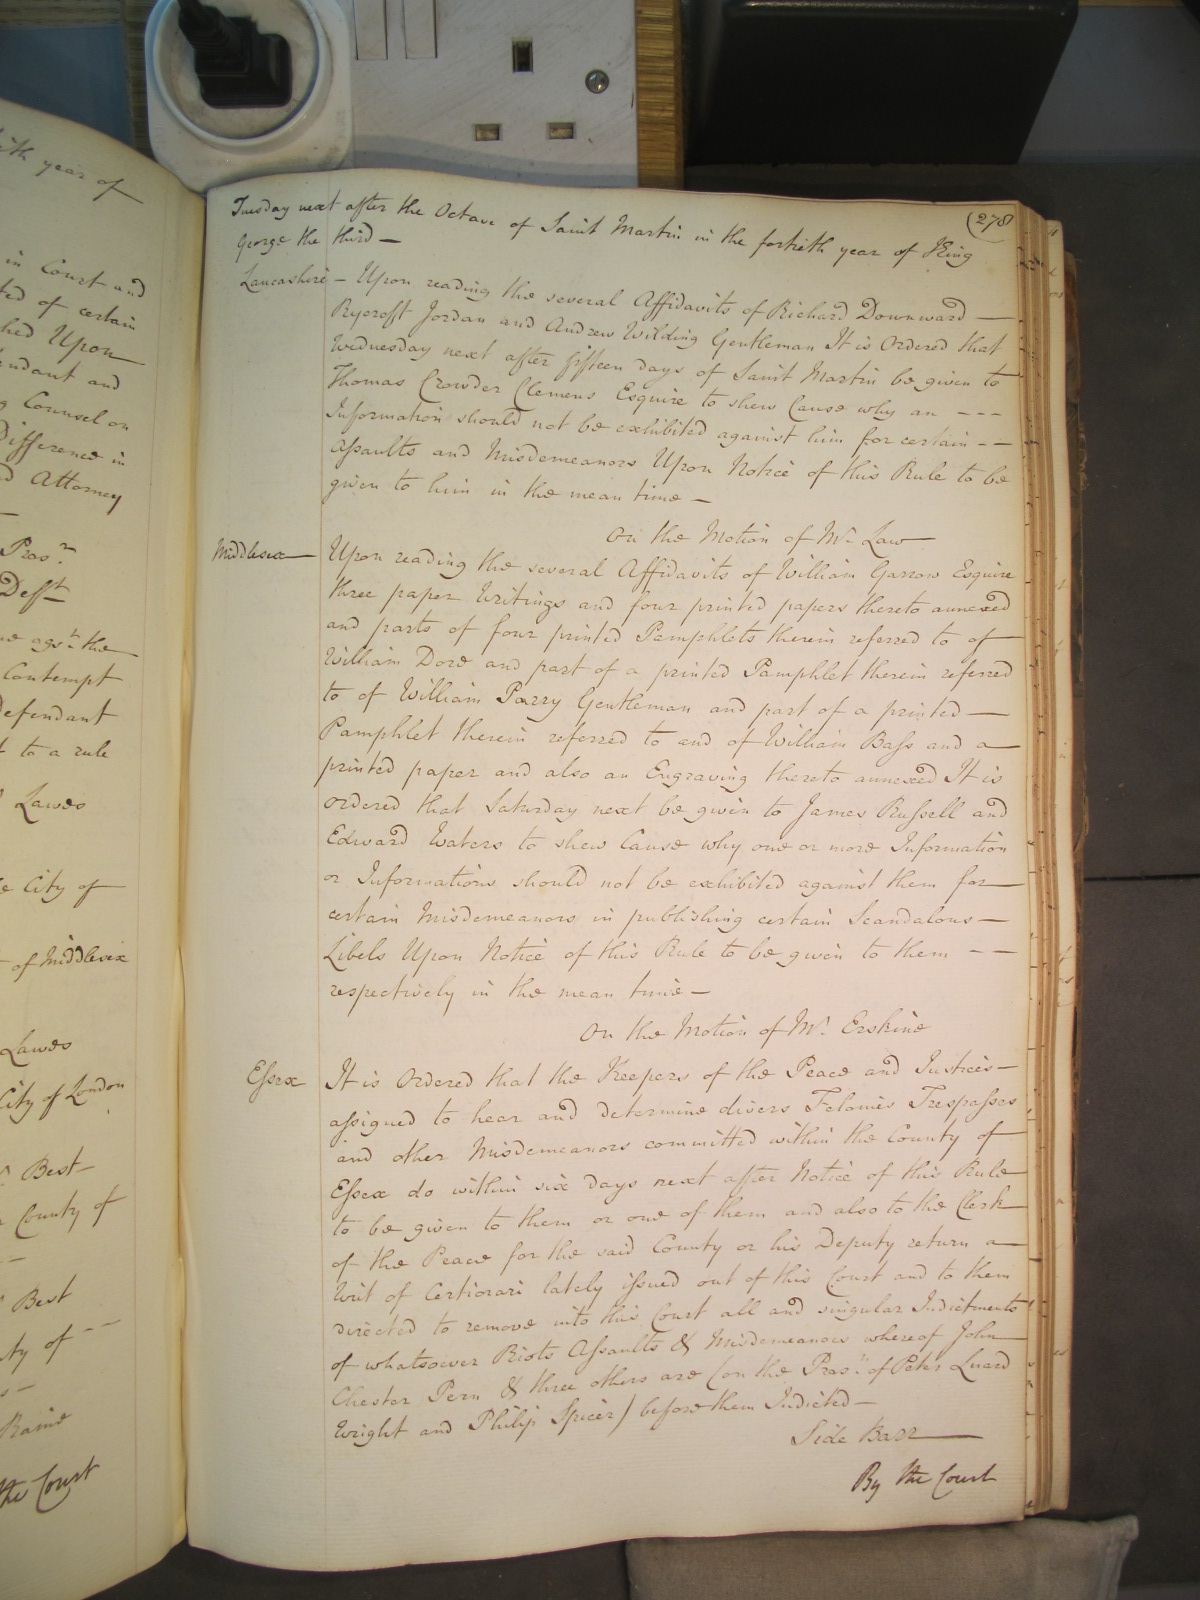 ith year of
in Court and
ted of certain
hed Upon
endant and
g Counsel on
Difference in
d Attorney
Pros.r
Deft
ne agst the
Contempt
Defendant
t to a rule
Lawes
e City of
of Middlesex
Lawes
City of London
Best
County of
Best
ty of
Raine
the Court
(278
Tuesday next after the Octave of Saint Martin in the fortieth year of King
George the third —
Lancashire — Upon reading the several Affidavits of Richard Downward —
Rycroft Jordan and Andrew Wilding Gentleman It is Ordered that
Wednesday next after fifteen days of Saint Martin be given to
Thomas Crowder Clemens Esquire to shew Cause why an - - -
Information should not be exhibited against him for certain - -
Assaults and Misdemeanors Upon Notice of this Rule to be
given to him in the mean time —
On the Motion of Mr. Law —
Middlesex — Upon reading the several Affidavits of William Garrow Esquire
three paper Writings and four printed papers thereto annexed
and parts of four printed Pamphlets therein referred to of
William Dore and part of a printed Pamphlet therein referred
to of William Parry Gentleman and part of a printed —
Pamphlet therein referred to and of William Bass and a
printed paper and also an Engraving thereto annexed It is
ordered that Saturday next be given to James Russell and
Edward Waters to shew Cause why one or more Information
or Informations should not be exhibited against them for
certain Misdemeanors in publishing certain Scandalous —
Libels Upon Notice of this Rule to be given to them - -
respectively in the mean time —
On the Motion of Mr. Erskine
Essex It is Ordered that the Keepers of the Peace and Justices —
assigned to hear and determine divers Felonies Trespasses
and other Misdemeanors committed within the County of
Essex do within six days next after Notice of this Rule
to be given to them or one of them and also to the Clerk
of the Peace for the said County or his Deputy return a
Writ of Certiorari lately issued out of this Court and to them
directed to remove into this Court all and singular Indictments
of whatsoever Riots Assaults & Misdemeanors whereof John
Chester Pern & three others are (on the Pros.n of Peter Luard
Wright and Philip Spicer) before them Indicted —
Side Barr —
By the Court